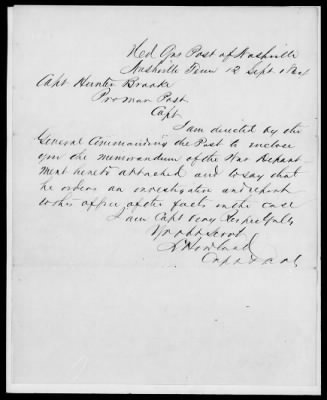 Hed Qrs Post of Nashville
Nashville Tenn 12 Sept 1864
Capt Hunter Brooke
Pro Mar Post
Capt
I am directed by the
General Commanding the Post to enclose
you the memorandum of the War Depart
ment hereto attached and to say that
he orders an investigation and report
to this office of the facts in the case
I am Capt Very Respectfully
Yr obt Servt
Howland
Capt & A A G